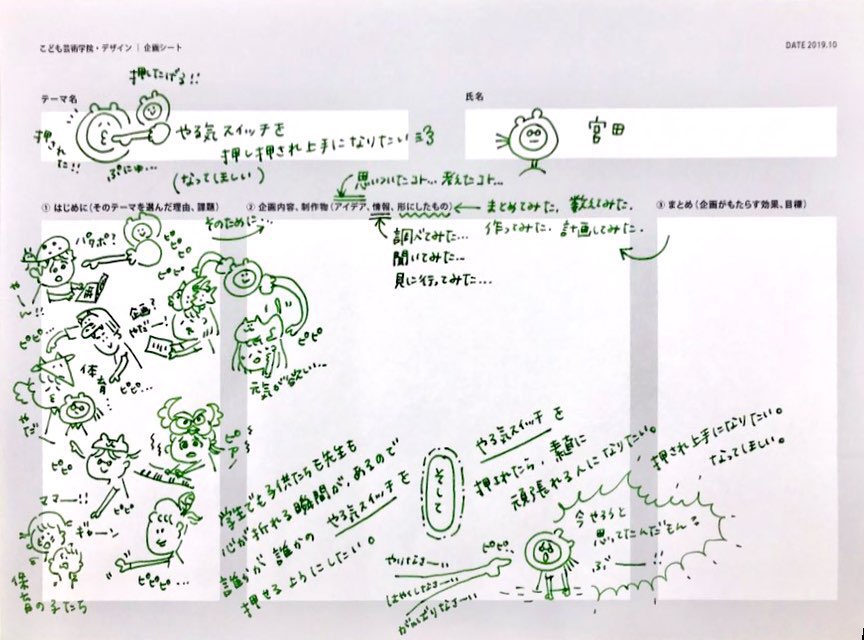 こども芸術学院・デザイン | 企画シート
DATE 2019.10
押したげる!!
テーマ名
氏名
押された!!
ぷにゅ…
やる気スイッチを
押し押され上手になりたい
(なってほしい)
宮田
思いついたコト… 考えたコト…
① はじめに(そのテーマを選んだ理由、課題)
② 企画内容、制作物(アイデア、情報、形にしたもの)
③ まとめ(企画がもたらす効果、目標)
そのために…
まとめてみた。 数えてみた。
作ってみた。 計画してみた。
調べてみた…
聞いてみた…
見に行ってみた…
パタポ?
ピピピ
やーん!!
企画?
やだー!
ピピ…
ピピ
体育
ピピ…
元気が欲しい…
やだー
ピピ
ピアノ
ピピ
ママー!!
ギャーン
ピピピ…
保育の子たち
学生でも子供たちも先生も
心が折れる瞬間が、あるので
誰かが誰かの やる気スイッチを
押せるようにしたい。
そして
やる気スイッチを
押されたら、素直に
頑張れる人になりたい。
押され上手になりたい。
なってほしい。
今やろうと
思ってたんだどん!
ぶーー!!
ピピ
やりなさーい
はやくしなさーい
がんばりなさーい